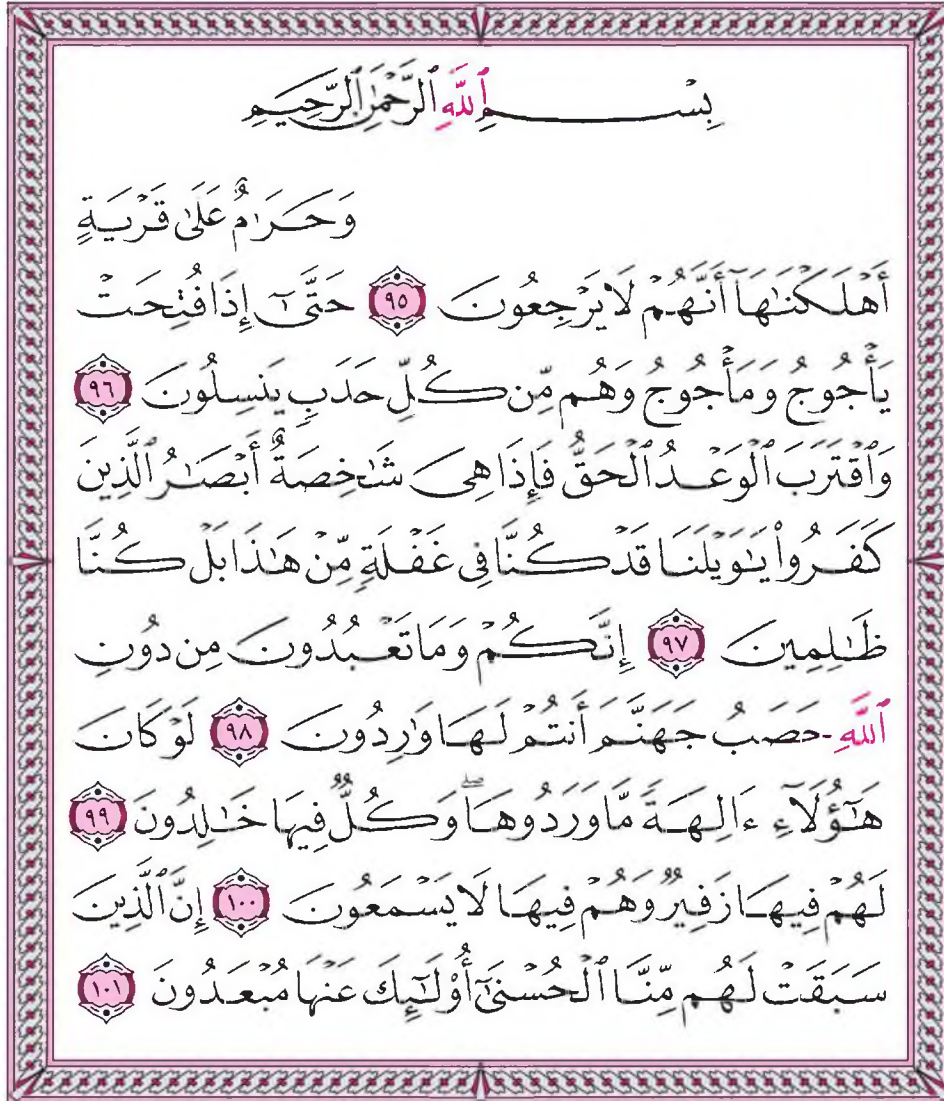 بِسْمِ ٱللَّهِ ٱلرَّحْمَٰنِ ٱلرَّحِيمِ
وَحَرَٰمٌ عَلَىٰ قَرْيَةٍ
أَهْلَكْنَٰهَآ أَنَّهُمْ لَا يَرْجِعُونَ ٩٥ حَتَّىٰٓ إِذَا فُتِحَتْ
يَأْجُوجُ وَمَأْجُوجُ وَهُم مِّن كُلِّ حَدَبٍ يَنسِلُونَ ٩٦
وَٱقْتَرَبَ ٱلْوَعْدُ ٱلْحَقُّ فَإِذَا هِىَ شَٰخِصَةٌ أَبْصَٰرُ ٱلَّذِينَ
كَفَرُوا۟ يَٰوَيْلَنَا قَدْ كُنَّا فِى غَفْلَةٍ مِّنْ هَٰذَا بَلْ كُنَّا
ظَٰلِمِينَ ٩٧ إِنَّكُمْ وَمَا تَعْبُدُونَ مِن دُونِ
ٱللَّهِ حَصَبُ جَهَنَّمَ أَنتُمْ لَهَا وَٰرِدُونَ ٩٨ لَوْ كَانَ
هَٰٓؤُلَآءِ ءَالِهَةً مَّا وَرَدُوهَا ۖ وَكُلٌّ فِيهَا خَٰلِدُونَ ٩٩
لَهُمْ فِيهَا زَفِيرٌ وَهُمْ فِيهَا لَا يَسْمَعُونَ ١٠٠ إِنَّ ٱلَّذِينَ
سَبَقَتْ لَهُم مِّنَّا ٱلْحُسْنَىٰٓ أُو۟لَٰٓئِكَ عَنْهَا مُبْعَدُونَ ١٠١